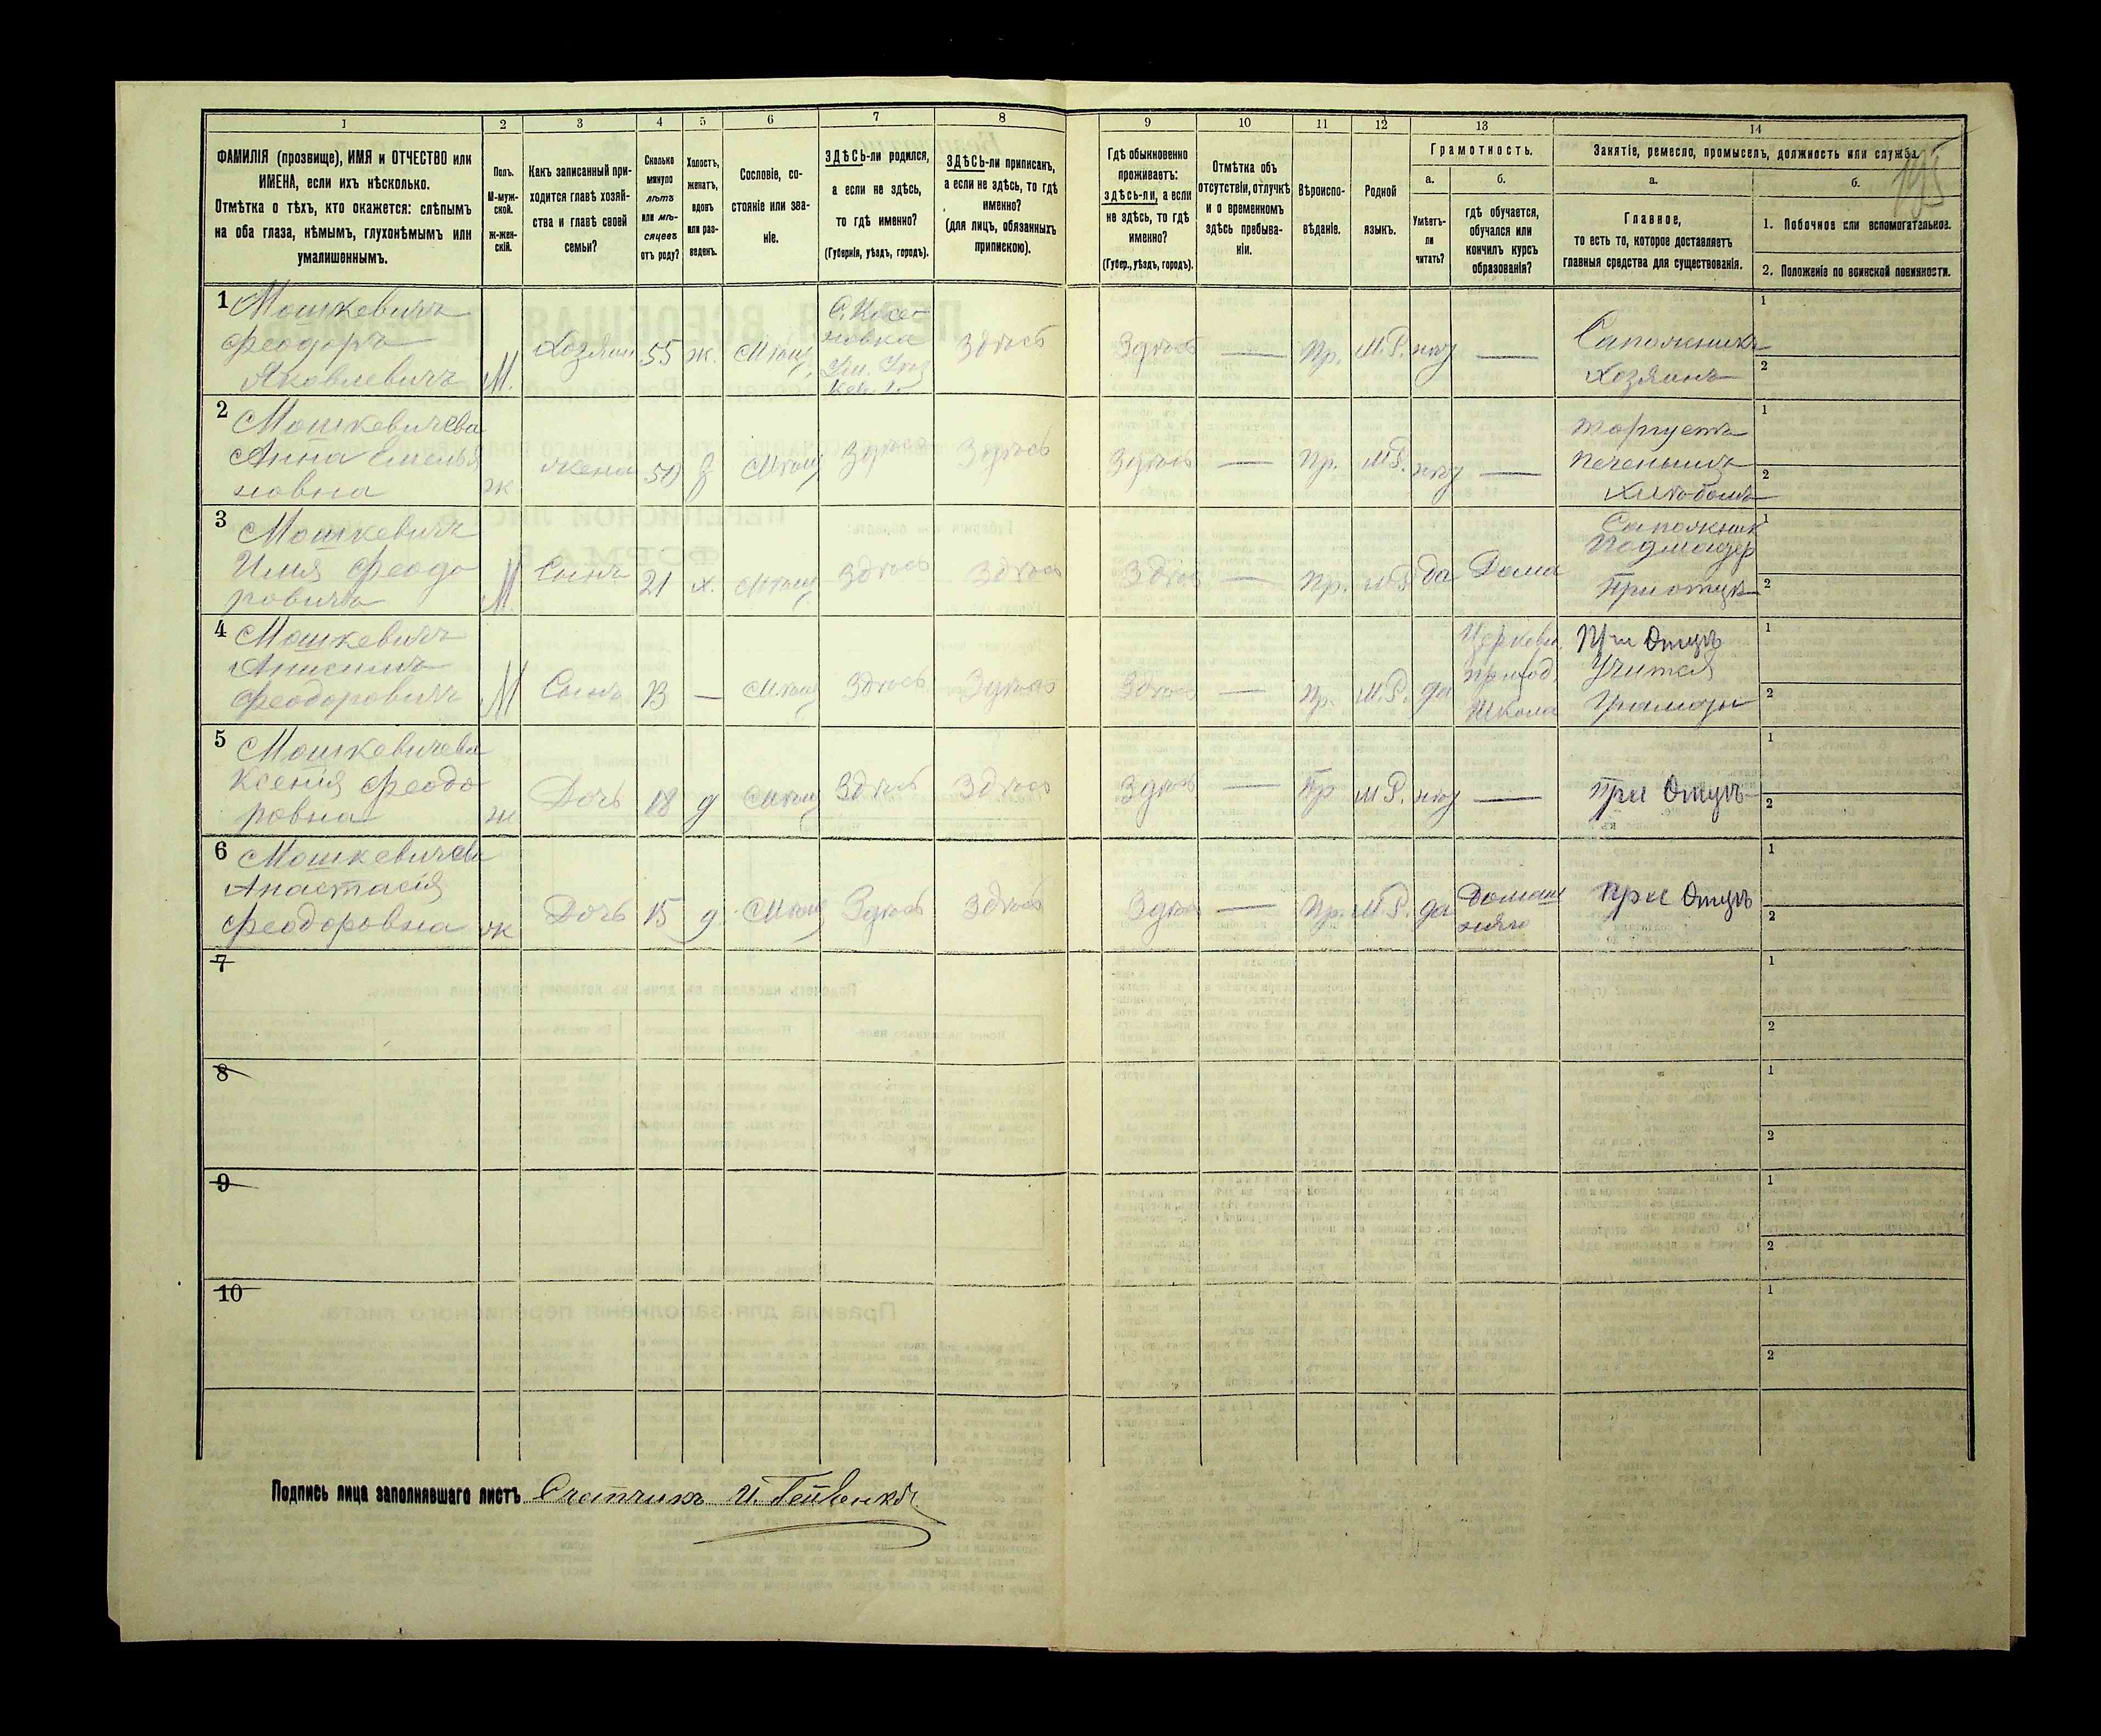 1
2
3
4
5
6
7
8
9
10
11
12
13
14
ФАМИЛІЯ (прозвище), ИМЯ и ОТЧЕСТВО или
ИМЕНА, если ихъ нѣсколько.
Отмѣтка о тѣхъ, кто окажется: слѣпымъ
на оба глаза, нѣмымъ, глухонѣмымъ или
умалишеннымъ.
Полъ.
М-муж-
ской.
ж-жен-
скій.
Какъ записанный при-
ходится главѣ хозяй-
ства и главѣ своей
семьи?
Сколько
минуло
лѣтъ
или мѣ-
сяцевъ
отъ роду?
Холостъ,
женатъ,
вдовъ
или раз-
веденъ.
Сословіе, со-
стояніе или зва-
ніе.
ЗДѢСЬ-ли родился,
а если не здѣсь,
то гдѣ именно?
(Губернія, уѣздъ, городъ).
ЗДѢСЬ-ли приписанъ,
а если не здѣсь, то гдѣ
именно?
(для лицъ, обязанныхъ
припискою).
Гдѣ обыкновенно
проживаетъ:
здѣсь-ли, а если
не здѣсь, то гдѣ
именно?
(Губер., уѣздъ, городъ).
Отмѣтка объ
отсутствіи, отлучкѣ
и о временномъ
здѣсь пребыва-
ніи.
Вѣроиспо-
вѣданіе.
Родной
языкъ.
Грамотность.
а.
Умѣетъ-
ли
читать?
б.
гдѣ обучается,
обучался или
кончилъ курсъ
образованія?
Занятіе, ремесло, промыселъ, должность или служба.
195
а.
Главное,
то есть то, которое доставляетъ
главныя средства для существованія.
б.
1. Побочное или вспомогательное.
2. Положеніе по воинской повинности.
1 Мошкевичъ
Феодоръ
Яковлевичъ
М.
Хозяин
55
ж.
Мѣщ.
Здѣсь
Здѣсь
—
Пр.
М.Р.
нѣт
—
Сапожникъ
Хозяинъ
1
2
2 Мошкевичева
Анна Емелья
новна
ж
жена
50
з
Мѣщ
Здѣсь
Здѣсь
Здѣсь
—
Пр.
М.Р.
нѣт
—
торгуетъ
печенымъ
хлѣбомъ
1
2
3 Мошкевичъ
Илья Феодо
ровичъ
М
Сынъ
21
х.
Мѣщ.
Здѣсь
Здѣсь
Здѣсь
—
Пр.
М.Р.
да
Дома
Сапожник
Подмастер
При отцѣ
1
2
4 Мошкевичъ
Анисимъ
Феодоровичъ
М
Сынъ
13
—
Мѣщ
Здѣсь
Здѣсь
Здѣсь
—
Пр.
М.Р.
да
Церковн.
приход.
Школа
При Отцѣ
Учится
Грамоты
1
2
5 Мошкевичева
Ксенія Феодо
ровна
ж
Дочь
18
д
Мѣщ
Здѣсь
Здѣсь
Здѣсь
—
Пр
М.Р.
нѣт
—
при Отцѣ
1
2
6 Мошкевичева
Анастасія
Феодоровна
ж
Дочь
15
д
Мѣщ
Здѣсь
Здѣсь
Здѣсь
—
Пр.
М.Р.
да
Домаш
няго
при Отцѣ
1
2
7
1
2
8
1
2
9
1
2
10
1
2
Подпись лица заполнявшаго листъ Счетчикъ И.